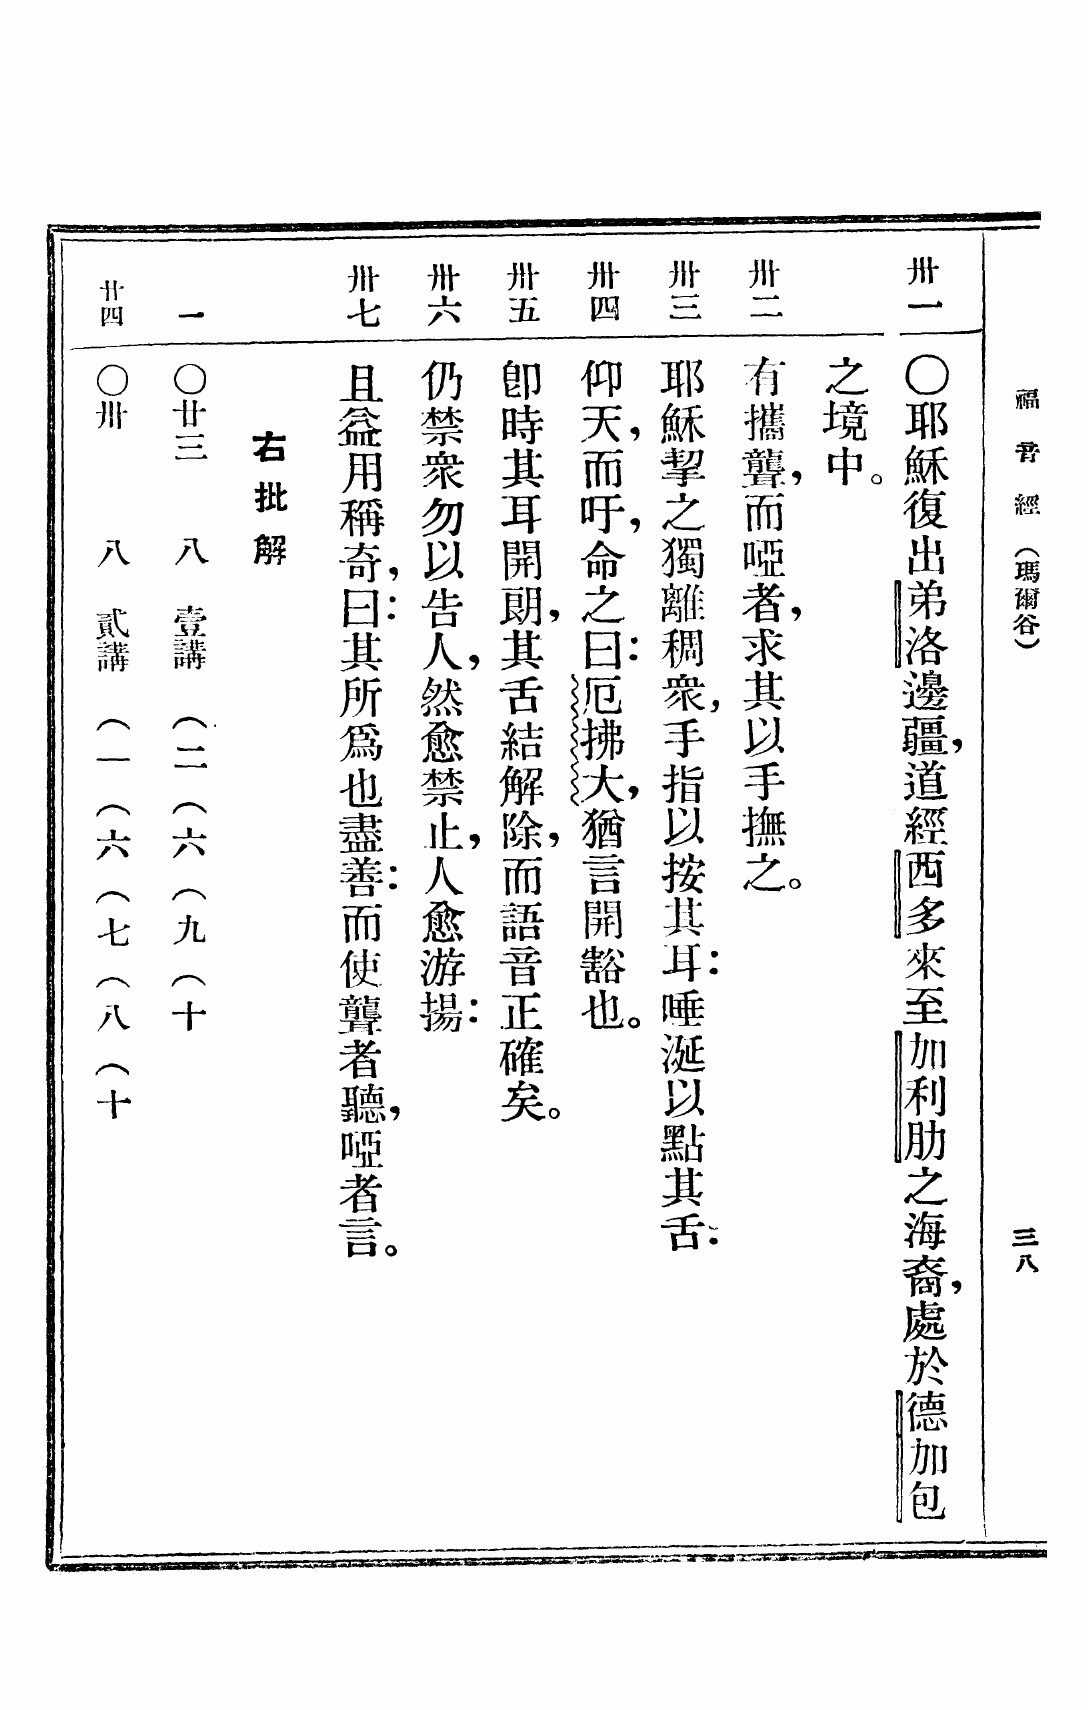 福音經（瑪爾谷）　三八
卅一　〇耶穌復出弟洛邊疆，道經西多來至加利肋之海裔，處於德加包
之境中。
卅二　有攜聾，而啞者，求其以手撫之。
卅三　耶穌挈之獨離稠衆，手指以按其耳：唾涎以點其舌：
卅四　仰天，而吁，命之曰：厄拂大，猶言開豁也。
卅五　卽時其耳開朗，其舌結解除，而語音正確矣。
卅六　仍禁衆勿以告人，然愈禁止，人愈游揚：
卅七　且益用稱奇，曰：其所爲也盡善：而使聾者聽，啞者言。
右批解
一　〇廿三　八　壹講（二（六（九（十
廿四　〇卅　八　貳講（一（六（七（八（十